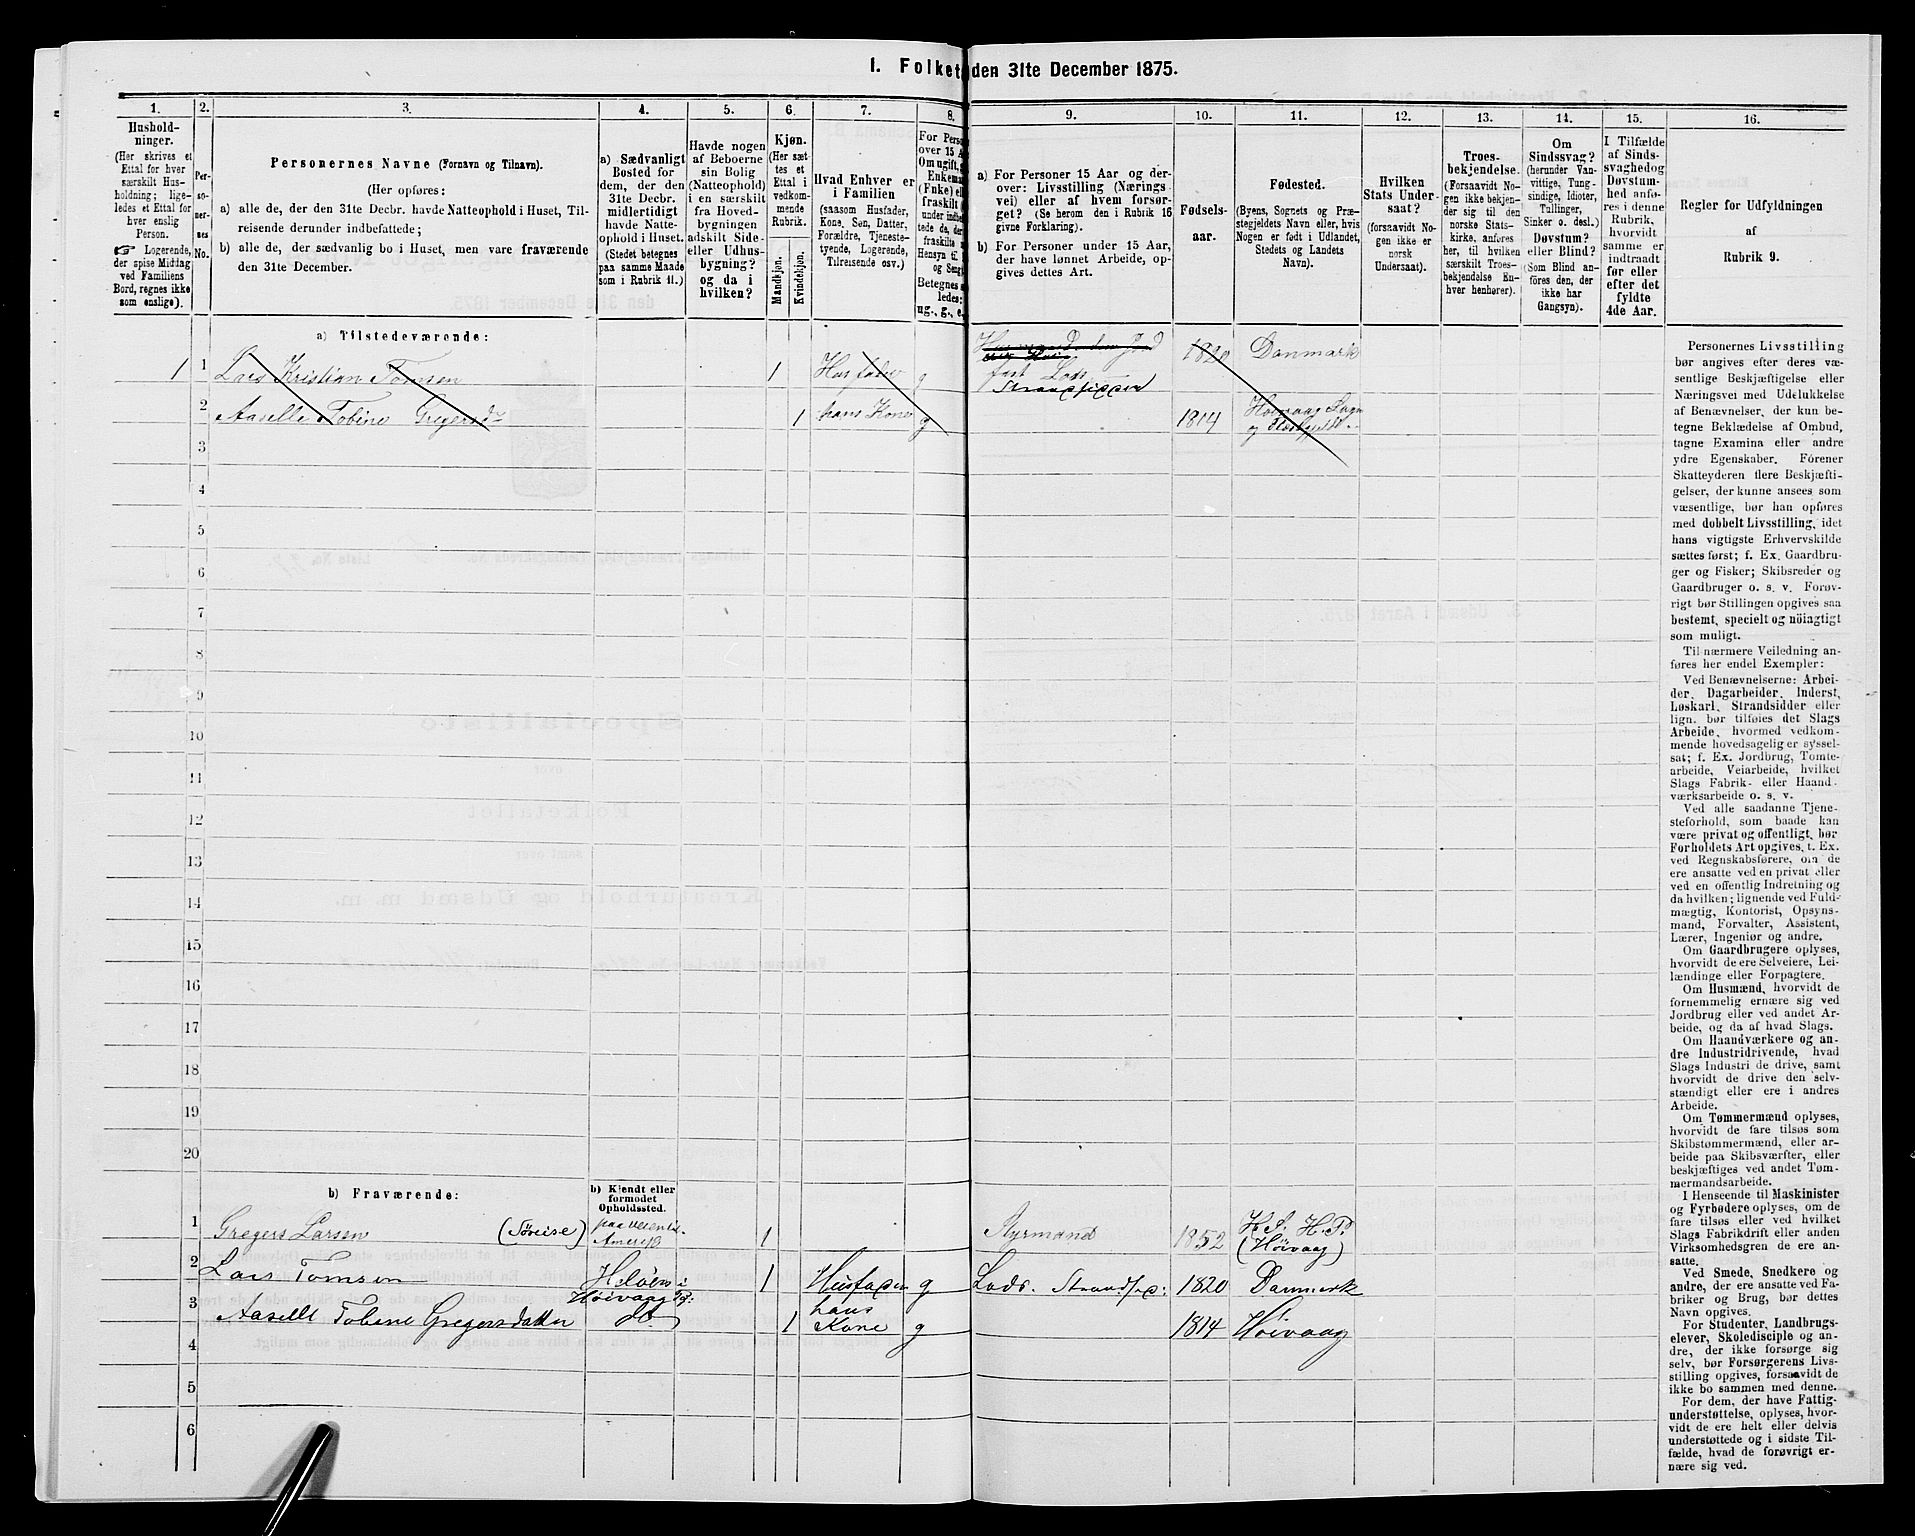 1. Folket den 31te December 1875.
1. 2. 3. 4. 5. 6. 7. 8. 9. 10. 11. 12. 13. 14. 15. 16.
Hushold-
ninger.
(Her skrives et
Ettal for hver
særskilt Hus-
holdning; lige-
ledes et Ettal for
hver enslig
Person.
Logerende,
der spise Middag
ved Familiens
Bord, regnes ikke
som enslige).
Per-
so-
ner-
nes
No.
Personernes Navne (Fornavn og Tilnavn).
(Her opføres:
a) alle de, der den 31te Decbr. havde Natteophold i Huset, Til-
reisende derunder indbefattede;
b) alle de, der sædvanlig bo i Huset, men vare fraværende
den 31te December.
a) Sædvanligt
Bosted for
dem, der den
31te Decbr.
midlertidigt
havde Natte-
ophold i Huset.
(Stedet betegnes
paa samme Maade
som i Rubrik 11.)
Havde nogen
af Beboerne
sin Bolig
(Natteophold)
i en særskilt
fra Hoved-
bygningen
adskilt Side-
eller Udhus-
bygning?
og da i
hvilken?
Kjøn.
(Her sæt-
tes et
Ettal i
vedkom-
mende
Rubrik.
Mandkjøn.
Kvindekjøn.
Hvad Enhver er
i Familien
(saasom Husfader,
Kone, Søn, Datter,
Forældre, Tjeneste-
tyende, Logerende,
Tilreisende osv.)
For Pers
over 15 A
Om ugift, g
Enkema
(Fnke) el
fraskilt
under indbe
tede de, der
fraskilte
Hensyn til
og Seng
Betegnes
ledes:
ug., g., e.
a) For Personer 15 Aar og der-
over: Livsstilling (Nærings-
vei) eller af hvem forsør-
get? (Se herom den i Rubrik 16
givne Forklaring).
b) For Personer under 15 Aar,
der have lønnet Arbeide, op-
gives dettes Art.
Fødsels-
aar.
Fødested.
(Byens, Sognets og Præ-
stegjeldets Navn eller, hvis
Nogen er født i Udlandet,
Stedets og Landets
Navn).
Hvilken
Stats Under-
saat?
(forsaavidt No-
gen ikke er
norsk
Undersaat).
Troes-
bekjendelse.
(Forsaavidt No-
gen ikke bekjen-
der sig til den
norske Stats-
kirke, anføres
her, til hvilken
særskilt Troes-
bekjendelse En-
hver henhører).
Om
Sindssvag?
(herunder Van-
vittige, Tung-
sindige, Idioter,
Tullinger,
Sinker o. desl.)
Døvstum?
eller Blind?
(Som Blind an-
føres den, der
ikke har
Gangsyn).
I Tilfælde
af Sinds-
svaghed og
Døvstum-
hed anfø-
res i denne
Rubrik,
hvorvidt
samme er
indtraadt
før eller
efter det
fyldte
4de Aar.
Regler for Udfyldningen
af
Rubrik 9.
a) Tilstedeværende:
1 1 Lars Kristian Tomsen 1 Husfader g fast Lods Strandsidder 1820 Danmark
2 Aaselle Tobine Gregersdr 1 hans Kone g 1814 Høivaag Sogn
og
3
4
5
6
7
8
9
10
11
12
13
14
15
16
17
18
19
20
b) Fraværende:
b) Kjendt eller
formodet
Opholdssted.
1 Gregers Larsen (Søreise) 1 Styrmand 1852 H. S. H. P.
(Høivaag)
2 Lars Tomsen 1 Husfader g Lods. 1820 Danmark
Høivaag
3 Aaselle Tobine Gregersdatter do 1 hans
Kone g 1814 Høivaag
4
5
6
Personernes Livsstilling
bør angives efter deres væ-
sentlige Beskjæftigelse eller
Næringsvei med Udelukkelse
af Benævnelser, der kun be-
tegne Beklædelse af Ombud,
tagne Examina eller andre
ydre Egenskaber. Forener
Skatteyderen flere Beskjæfti-
gelser, der kunne ansees som
væsentlige, bør han opføres
med dobbelt Livsstilling, idet
hans vigtigste Erhvervskilde
sættes først; f. Ex. Gaardbru-
ger og Fisker; Skibsreder og
Gaardbruger o. s. v. Forøv-
rigt bør Stillingen opgives saa
bestemt, specielt og nöiagtigt
som muligt.
Til nærmere Veiledning an-
føres her endel Exempler:
Ved Benævnelserne: Arbei-
der, Dagarbeider, Inderst,
Løskarl, Strandsidder eller
lign. bør tilføies det Slags
Arbeide, hvormed vedkom-
mende hovedsagelig er syssel-
sat; f. Ex. Jordbrug, Tomte-
arbeide, Veiarbeide, hvilket
Slags Fabrik- eller Haand-
værksarbeide o. s. v.
Ved alle saadanne Tjene-
steforhold, som baade kan
være privat og offentligt, bør
Forholdets Art opgives, t. Ex.
ved Regnskabsførere, om de
ere ansatte ved en privat eller
ved en offentlig Indretning og
da hvilken; lignende ved Fuld-
mægtig, Kontorist, Opsyns-
mand, Forvalter, Assistent,
Lærer, Ingeniør og andre.
Om Gaardbrugere oplyses,
hvorvidt de ere Selveiere, Lei-
lændinge eller Forpagtere.
Om Husmænd, hvorvidt de
fornemmelig ernære sig ved
Jordbrug eller ved andet Ar-
beide, og da af hvad Slags.
Om Haandværkere og an-
dre Industridrivende, hvad
Slags Industri de drive, samt
hvorvidt de drive den selv-
stændigt eller ere i andres
Arbeide.
Om Tømmermænd oplyses,
hvorvidt de fare tilsøs som
Skibstømmermænd, eller ar-
beide paa Skibsværfter, eller
beskjæftiges ved andet Tøm-
mermandsarbeide.
I Henseende til Maskinister
og Fyrbødere oplyses, om de
fare tilsøs eller ved hvilket
Slags Fabrikdrift eller anden
Virksomhedsgren de ere an-
satte.
Ved Smede, Snedkere og
andre, der ere ansatte ved Fa-
briker og Brug, bør dettes
Navn opgives.
For Studenter, Landbrugs-
elever, Skoledisciple og an-
dre, der ikke forsørge sig
selv, bør Forsørgerens Livs-
stilling opgives, forsaavidt de
ikke bo sammen med denne.
For dem, der have Fattig-
understøttelse, oplyses, hvor-
vidt de ere helt eller delvis
understøttede og i sidste Til-
fælde, hvad de forøvrigt er-
nære sig ved.